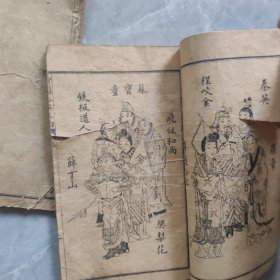 秦英
程咬金
蘇寶童
飛鈸和尚
鐵板道人
樊梨花
薛丁山